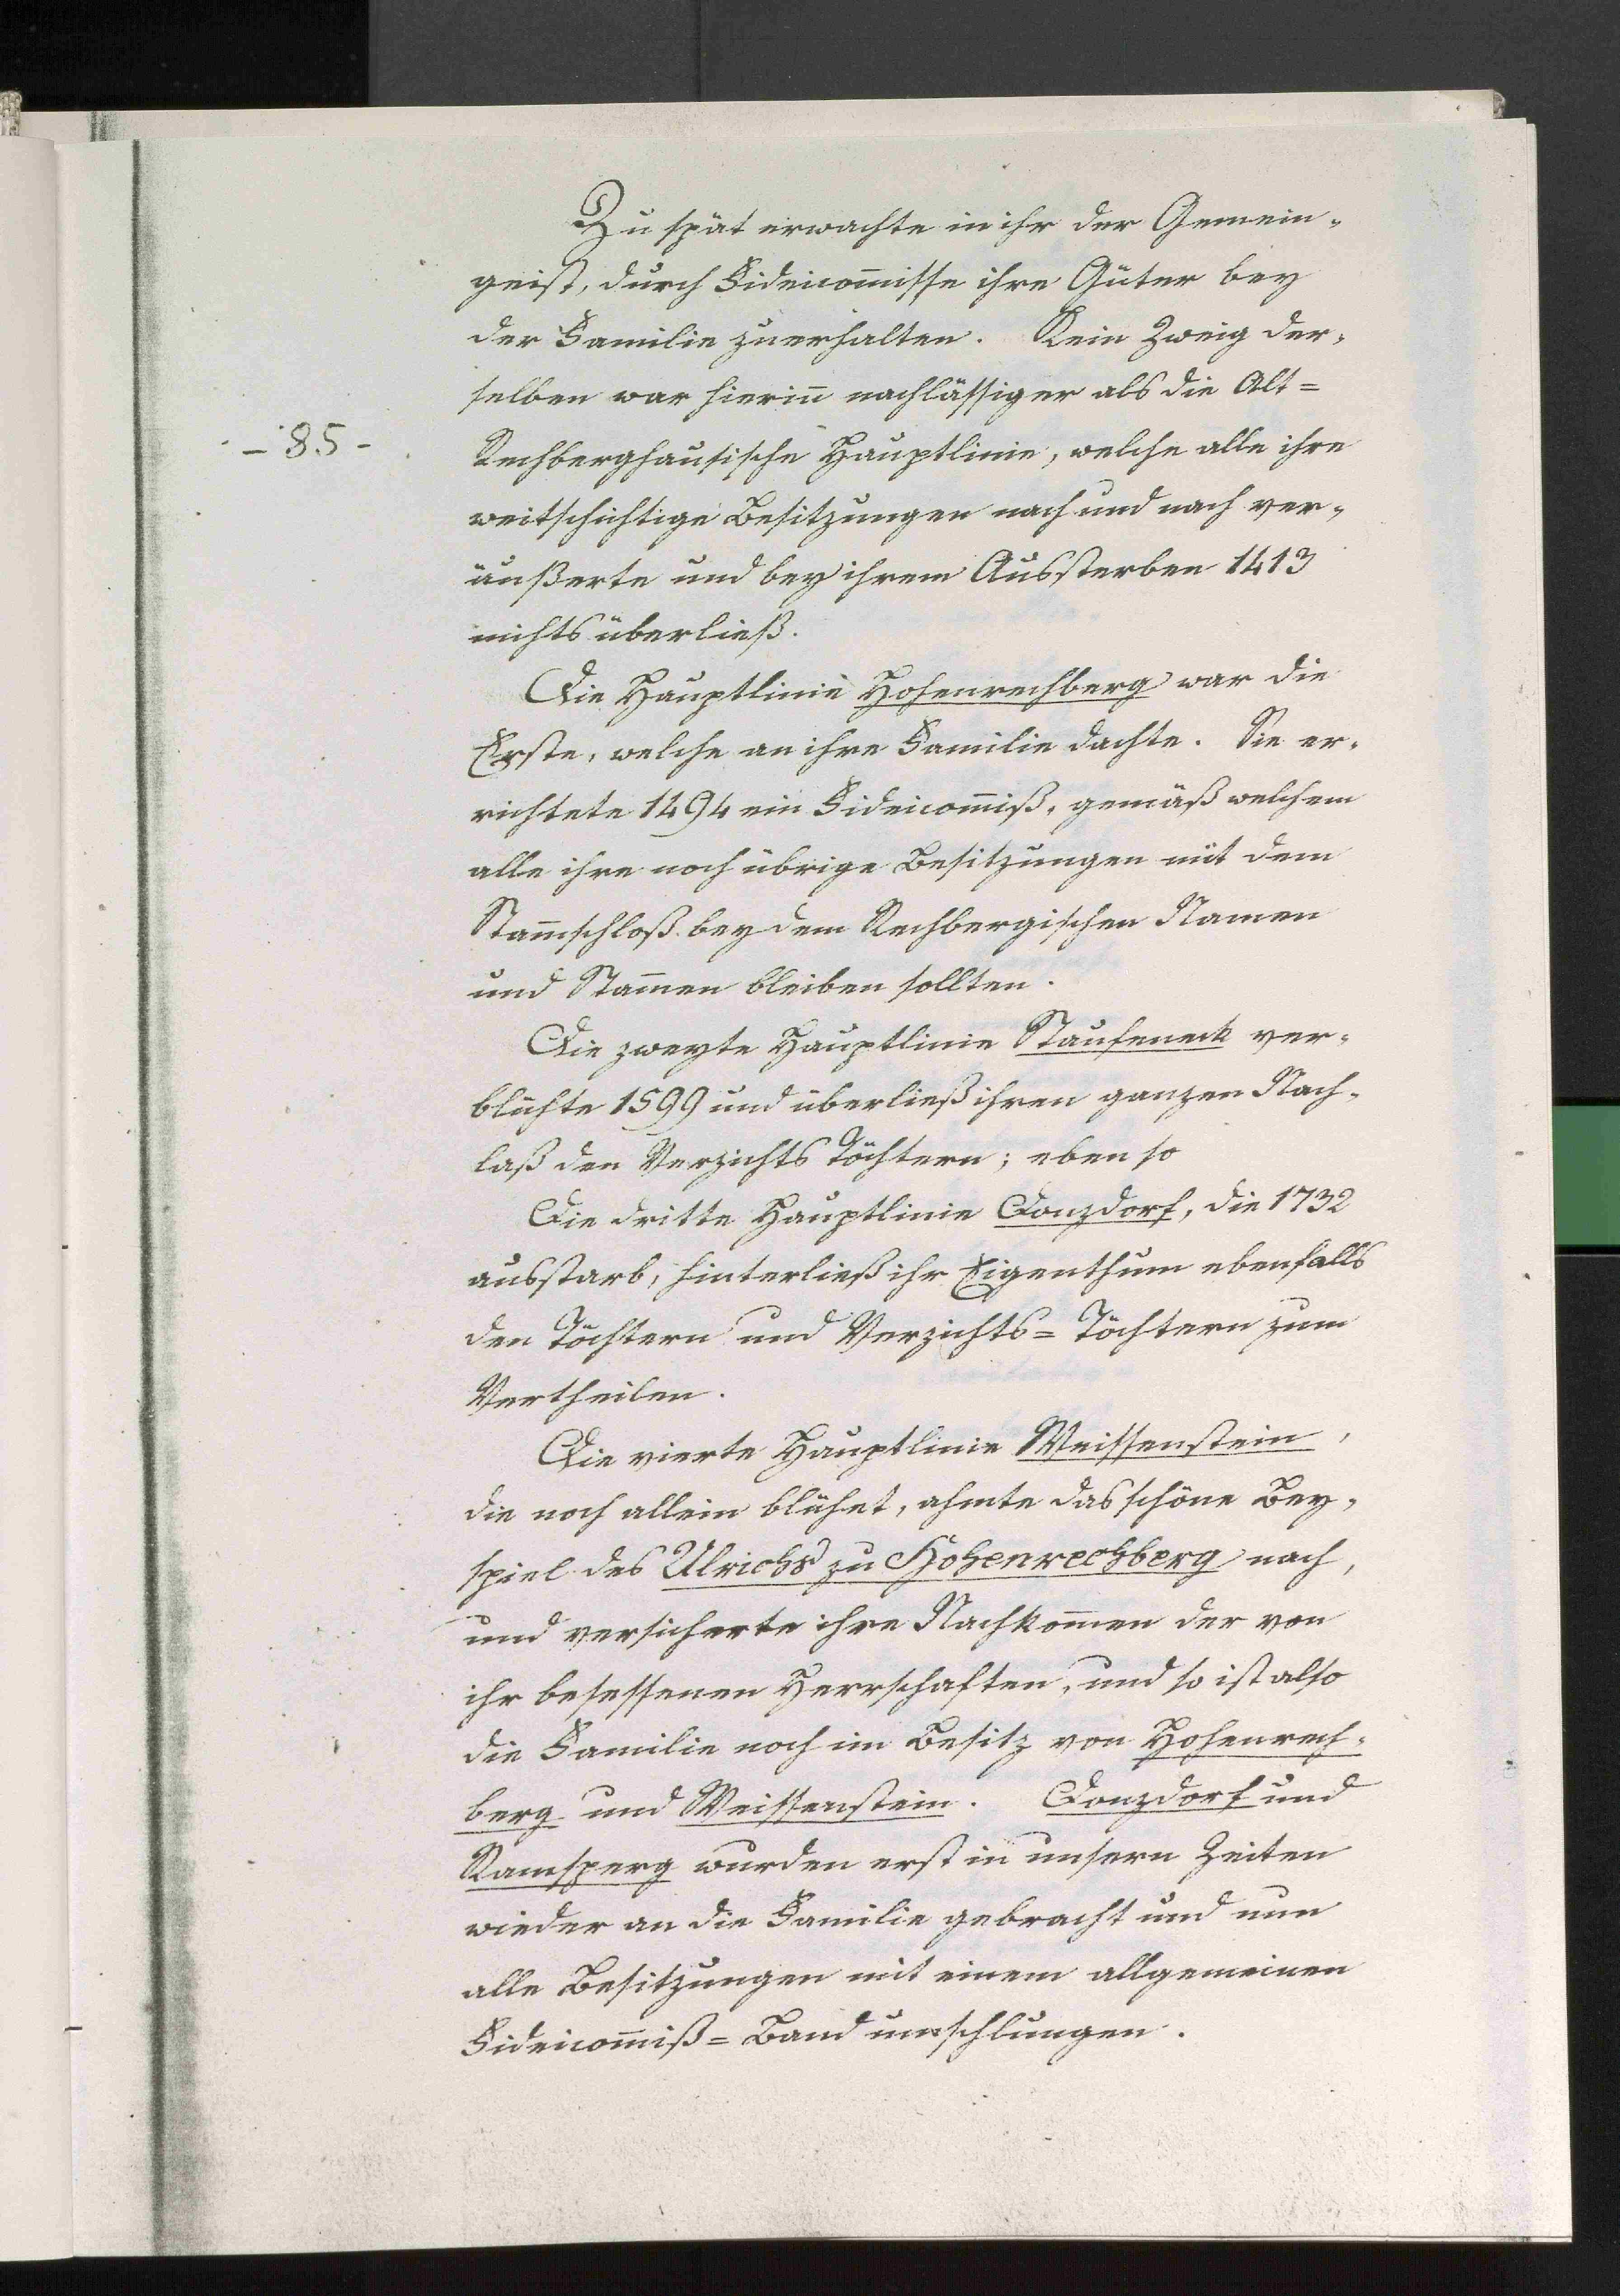 Zu spät erwachte in ihr der Gemein-
geist, durch Fideicom̅isse ihre Güter bey
der Familie zu erhalten. Kein Zweig der-
selben war hierin̅ nachlässiger als die Alt=
- 85 -
Rechberghausische Hauptlinie, welche alle ihre
weitschichtige Besitzungen nach und nach ver-
äußerte und bey ihrem Aussterben 1413
nichts überließ.
Die Hauptlinie Hohenrechberg war die
Erste, welche an ihre Familie dachte. Sie er-
richtete 1494 ein Fideicom̅iß, gemäß welchem
alle ihre noch übrige Besitzungen mit dem
Stam̅schloß bey dem Rechbergischen Namen
und Stam̅en bleiben sollten.
Die zweyte Hauptlinie Staufeneck ver-
blühte 1599 und überließ ihren ganzen Nach-
laß den Verzichts Töchtern; eben so
Die dritte Hauptlinie Donzdorf, die 1732
ausstarb, hinterließ ihr Eigenthum ebenfalls
den Töchtern und Verzichts= Töchtern zum
Vertheilen.
Die vierte Hauptlinie Weissenstein,
die noch allein blühet, ahmte das schöne Bey-
spiel des Ulrichs zu Hohenrechberg nach,
und versicherte ihre Nachkom̅en der von
ihr besessenen Herrschaften, und so ist also
die Familie noch im Besitz von Hohenrech-
berg und Weissenstein. Donzdorf und
Ramsperg wurden erst in unsern Zeiten
wieder an die Familie gebracht und nun
alle Besitzungen mit einem allgemeinen
Fideicom̅iß= Band umschlungen.